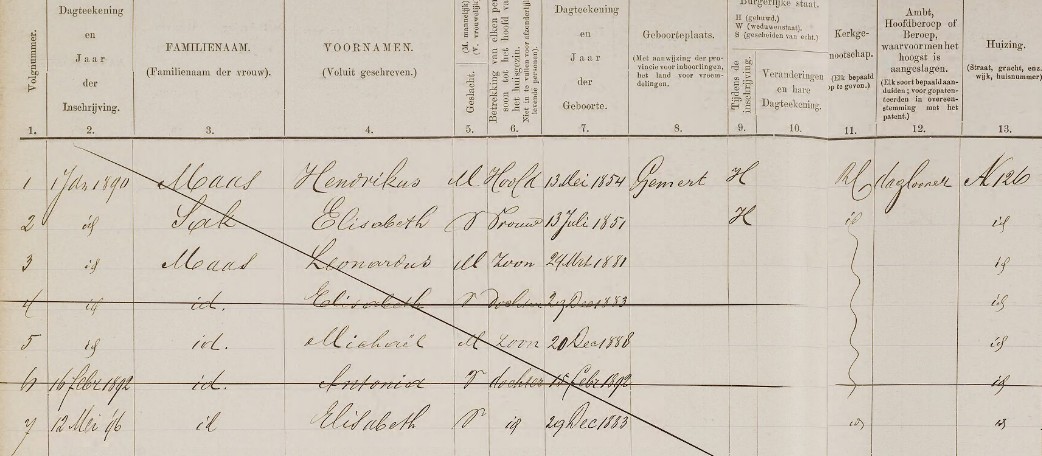 Volgnummer. Dagteekening en Jaar der Inschrijving. FAMILIENAAM. (Familienaam der vrouw). VOORNAMEN. (Voluit geschreven.) Geslacht. (M. mannelijk) (V. vrouwelijk) Betrekking van elken per soon tot het hoofd van het huisgezin. Niet in te vullen voor afzonderlijk levende personen). Dagteekening en Jaar der Geboorte. Geboorteplaats. (Met aanwijzing der provincie voor inboorlingen, het land voor vreemdelingen. Burgerlijke staat. H (gehuwd.) W (weduwenstaat). S (gescheiden van echt.) Tijdens de inschrijving. Veranderingen en hare Dagteekening. Kerkgenootschap. (Elk bepaald op te geven.) Ambt, Hoofdberoep of Beroep, waarvoor men het hoogst is aangeslagen. (Elk soort bepaald aanduiden; voor gepatenteerden in overeenstemming met het patent.) Huizing. (Straat, gracht, enz. wijk, huisnummer)
1. 2. 3. 4. 5. 6. 7. 8. 9. 10. 11. 12. 13.
1 1 Jan 1890 Maas Hendrikus M Hoofd 13 Mei 1854 Gemert H RK daglooner A 126
2 id Sak Elisabeth V Vrouw 13 Juli 1851 H id id
3 id Maas Leonardus M Zoon 24 Mrt 1881 id
4 id id. Elisabeth V dochter 29 Dec 1883 id
5 id id. Michaël M Zoon 20 Dec 1888 id
6 16 febr 1892 id. Antonia V dochter 15 febr 1892 id
7 12 Mei 96 id Elisabeth V id 29 Dec 1883 id id